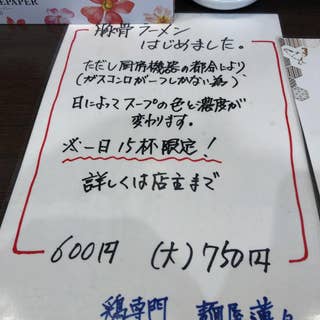 EPAPER
豚骨ラーメン
はじめました。
ただし厨房機器の都合により
(ガスコンロが一つしかない為)
日によってスープの色と濃度が
変わります。
※一日15杯限定!
詳しくは店主まで
600円 (大)750円
鶏専門 麺屋蓮